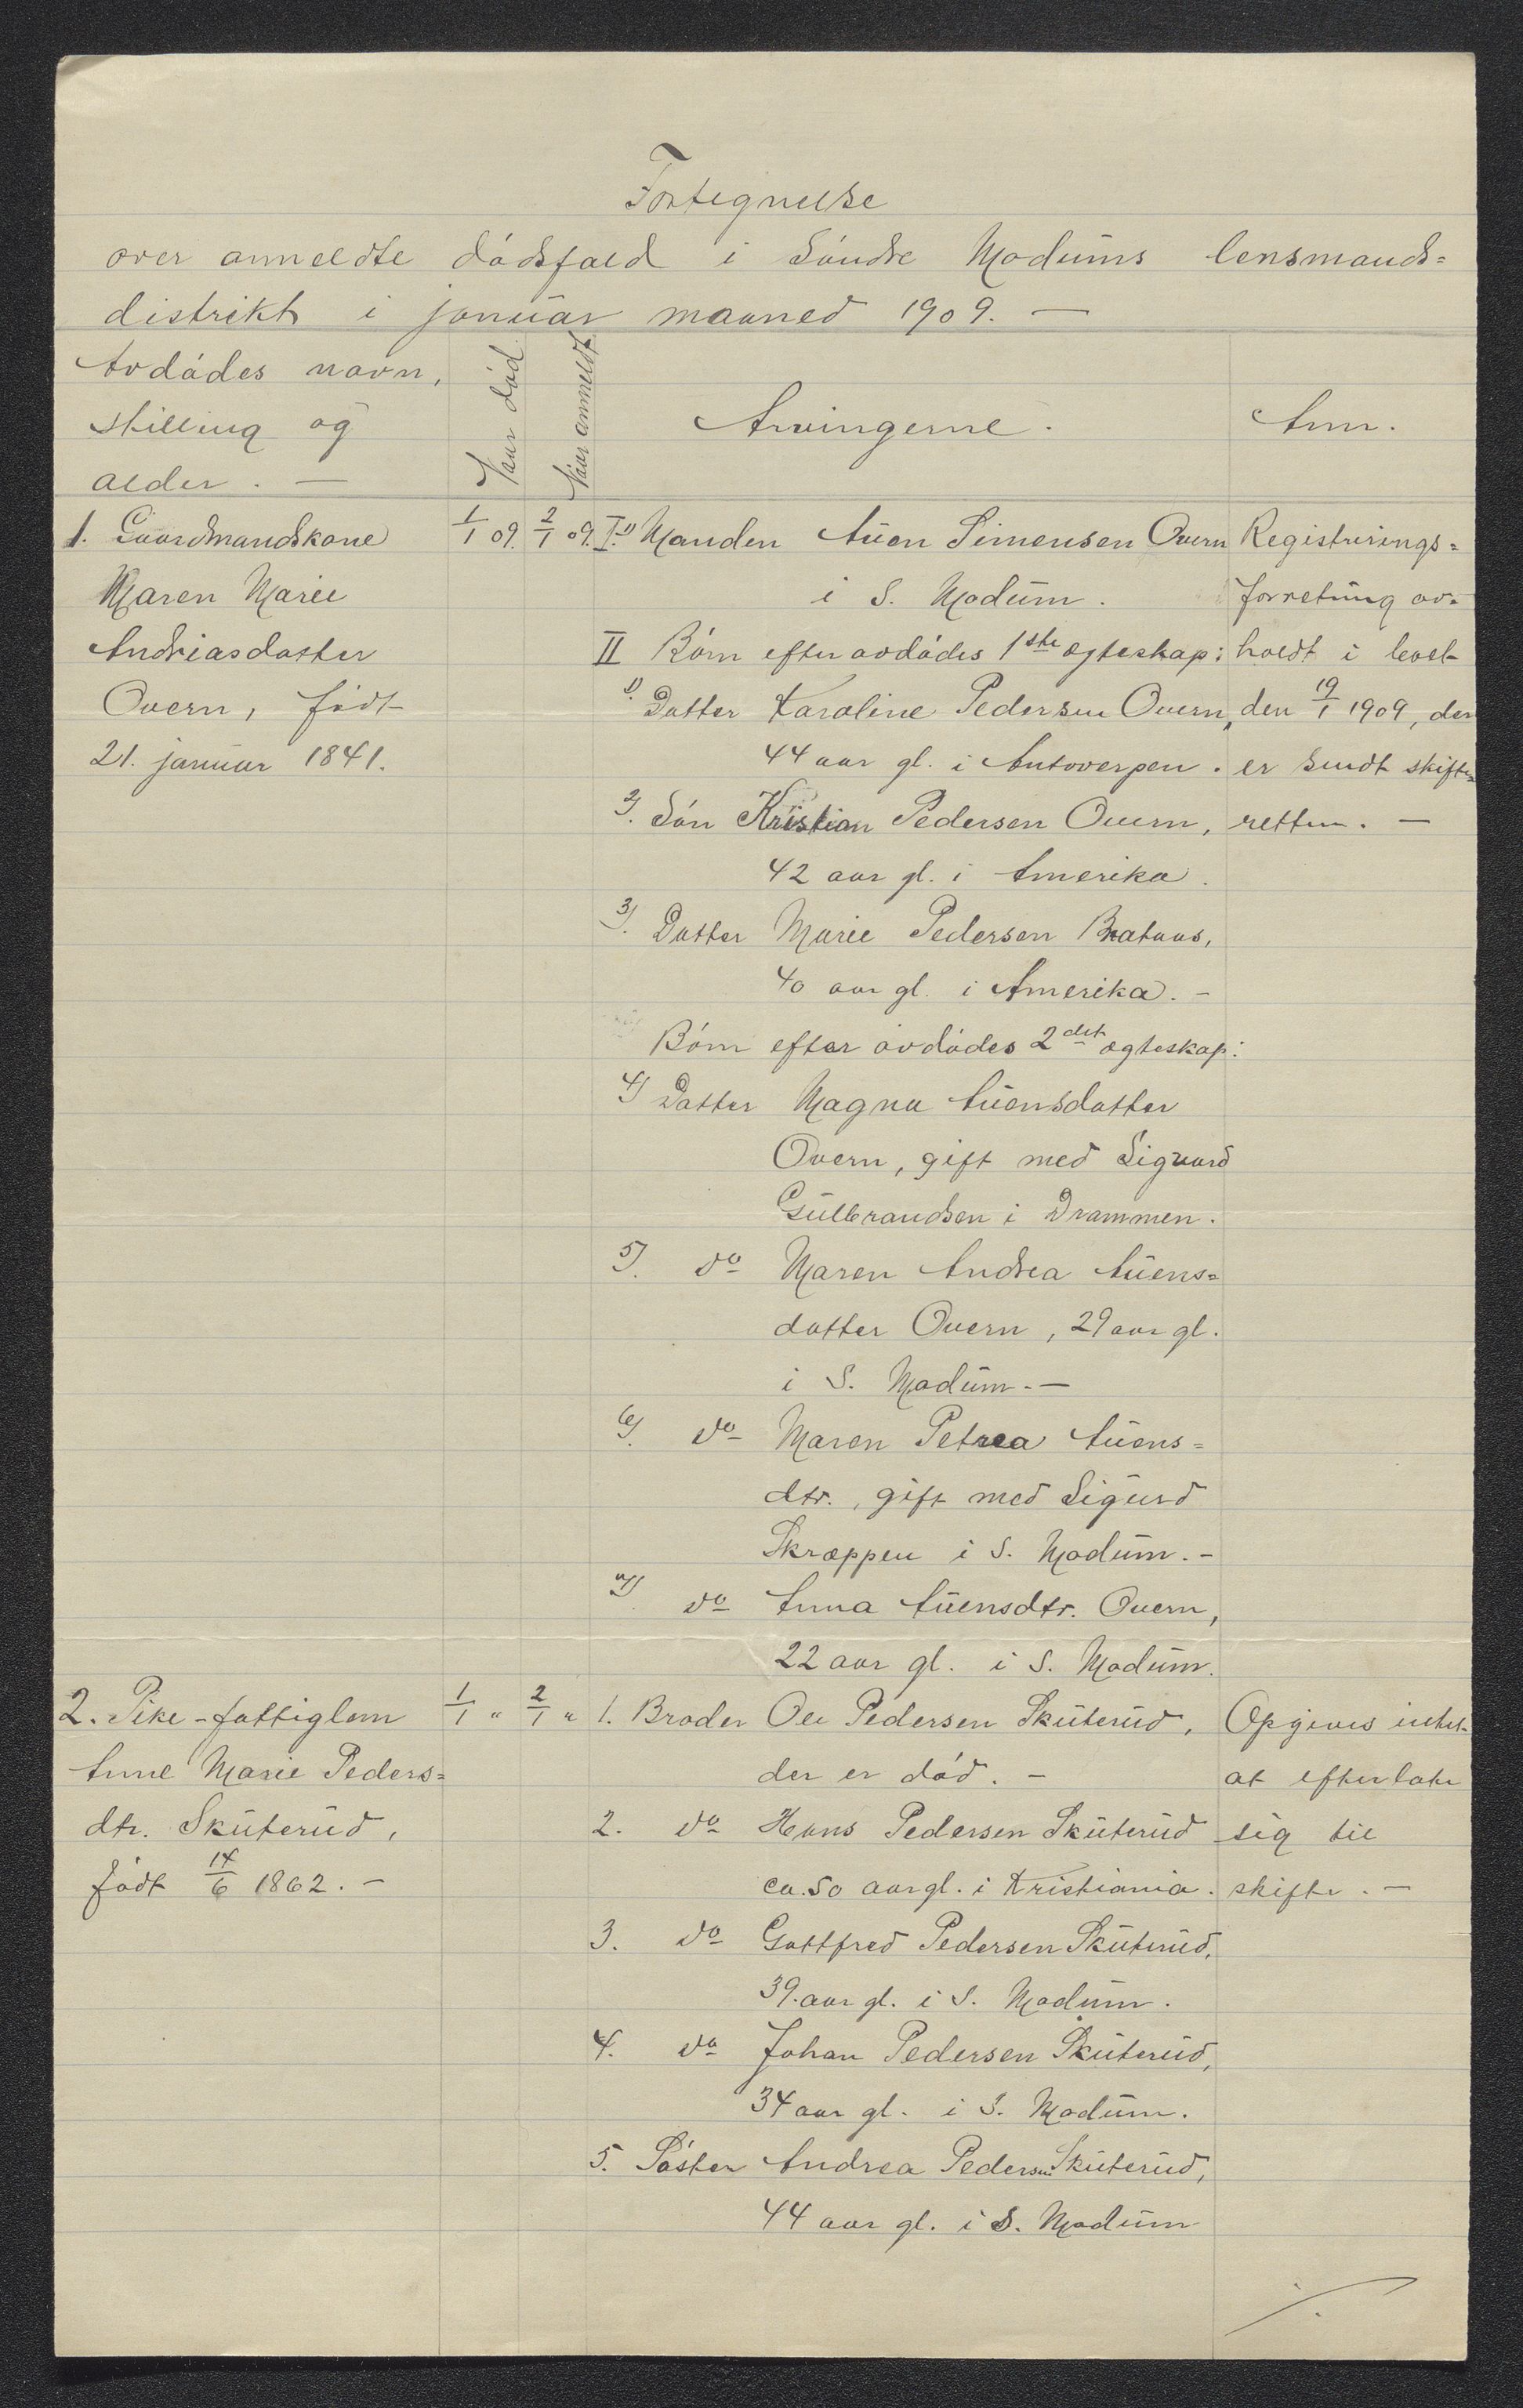 Fortegnelse
over anmeldte dødsfald i Søndre Modums lensmands=
distrikt i januar maaned 1909. —
Avdødes navn,
stilling og
alder. —
Naar død
Naar anmeldt
Arvingerne.
Anm.
1. Gaardmandskone
Maren Marie
Andreasdatter
Overn, født
21. januar 1841.
1/1 09.
2/1 09.
I. 1) Manden Auen Simensen Overn
i S. Modum.
II Børn efter avdødes 1ste egteskap:
1). Datter Karoline Pedersen Overn,
44 aar gl. i Antverpen.
2). Søn Kristian Pedersen Overn,
42 aar gl. i Amerika.
3). Datter Marie Pedersen Brataas,
40 aar gl. i Amerika. -
Børn efter avdødes 2det egteskap:
4) Datter Magna Auensdatter
Overn, gift med Sigvard
Gulbrandsen i Drammen.
5). do Maren Andrea Auens=
datter Overn, 29 aar gl.
i S. Modum. —
6). do Maren Petrea Auens=
dtr., gift med Sigurd
Skræppen i S. Modum. -
7). do Anna Auensdtr. Overn,
22 aar gl. i S. Modum.
Registrerings=
forretning av=
holdt i boet
den 19/1 1909, der
er sendt skifte=
retten. —
2. Pike - fattiglem
Anne Marie Peders=
dtr. Skuterud,
født 14/6 1862. -
1/1 "
2/1 "
1. Broder Ole Pedersen Skuterud,
der er død. -
2. do Hans Pedersen Skuterud
ca. 50 aar gl. i Kristiania.
3. do Gottfred Pedersen Skuterud,
39 aar gl. i S. Modum.
4. do Johan Pedersen Skuterud,
34 aar gl. i S. Modum.
5. Søster Andrea Pedersen Skuterud,
44 aar gl. i S. Modum
Opgives intet
at efterlate
sig til
skifte. —